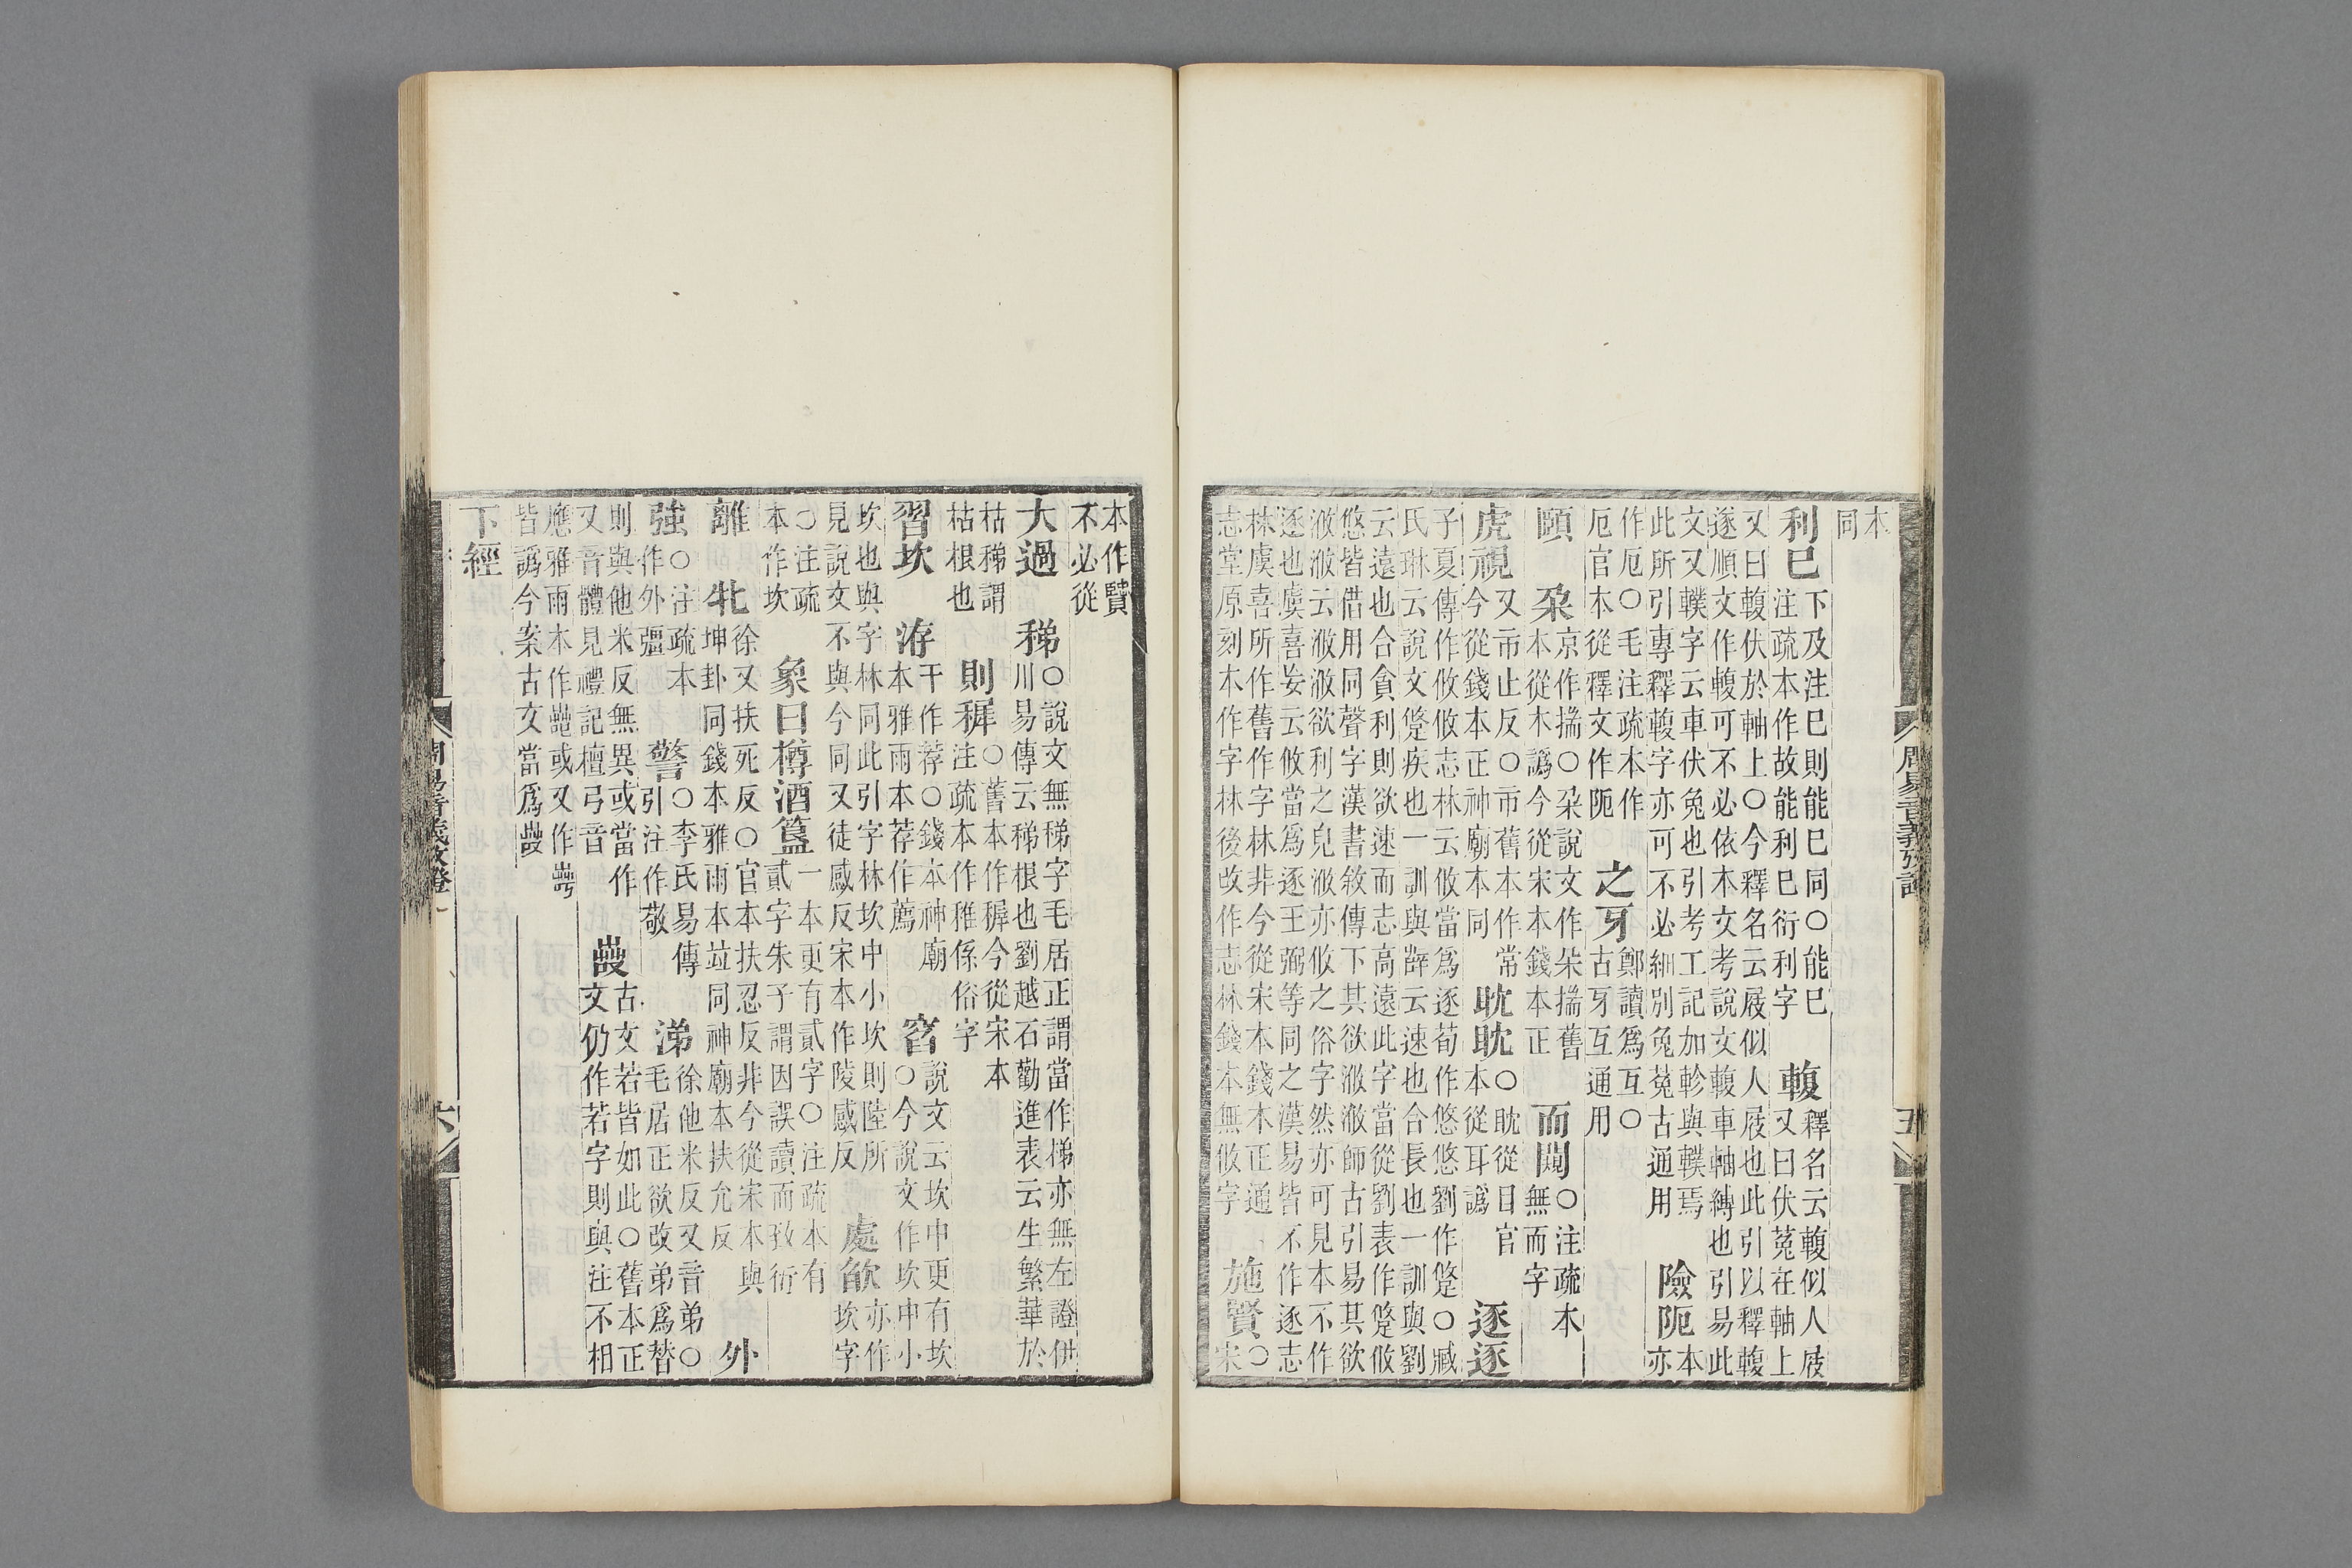 本
同
利巳
下及注巳則能巳同○能巳
注疏本作故能利巳衍利字
輹
釋名云輹似人屐
又曰伏菟在軸上
又曰輹伏於軸上○今釋名云屐似人屐也此引以釋輹
遂順文作輹可不必依本文考說文輹車軸縛也引易此
文又轐字云車伏兔也引考工記加軫與轐焉
此所引專釋輹字亦可不必細別兔菟古通用
險阨
本
亦
作厄○毛注疏本作
厄官本從釋文作阨
之牙
鄭讀爲互○
古牙互通用
頤
朶
京作揣○朶說文作朵揣舊
本從木譌今從宋本錢本正
而闚
○注疏本
無而字
虎視
又市止反○市舊本作常
今從錢本正神廟本同
眈眈
○眈從目官
本從耳譌
逐逐
子夏傳作攸攸志林云攸當爲逐荀作悠悠劉作跾○臧
氏琳云說文跾疾也一訓與薛云速也合長也一訓與劉
云遠也合貪利則欲速而志高遠此字當從劉表作跾攸
悠皆借用同聲字漢書敘傳下其欲浟浟師古引易其欲
浟浟云浟浟欲利之皃浟亦攸之俗字然亦可見本不作
逐也虞喜妄云攸當爲逐王弼等同之漢易皆不作逐志
林虞喜所作舊作字林非今從宋本錢本正通
志堂原刻本作字林後改作志林錢本無攸字
施賢
○
宋
周易音義攷證
五
本作贒
不必從
大過
稊
○說文無稊字毛居正謂當作梯亦無左證併
川易傳云稊根也劉越石勸進表云生繁華於
枯稊謂
枯根也
則稺
○舊本作穉今從宋本
注疏本作稚係俗字
習坎
洊
干作荐○錢本神廟
本雅雨本荐作薦
窞
說文云坎中更有坎
○今說文作坎中小
坎也與字林同此引字林坎中小坎則陸所
見說文不與今同又徒感反宋本作陵感反
處欿
亦作
坎字
○注疏
本作坎
象曰樽酒簋
一本更有貳字○注疏本有
貳字朱子謂因誤讀而致衍
離
牝
徐又扶死反○官本扶忍反非今從宋本與
坤卦同錢本雅雨本竝同神廟本扶允反
外
強
○注疏本
作外疆
警
○李氏易傳
引注作敬
涕
徐他米反又音弟○
毛居正欲改弟爲替
則與他米反無異或當作
又音體見禮記檀弓音
古文若皆如此○舊本正
文仍作若字則與注不相
應雅雨本作
或又作
皆譌今案古文當爲
下經
周易音義攷證
六